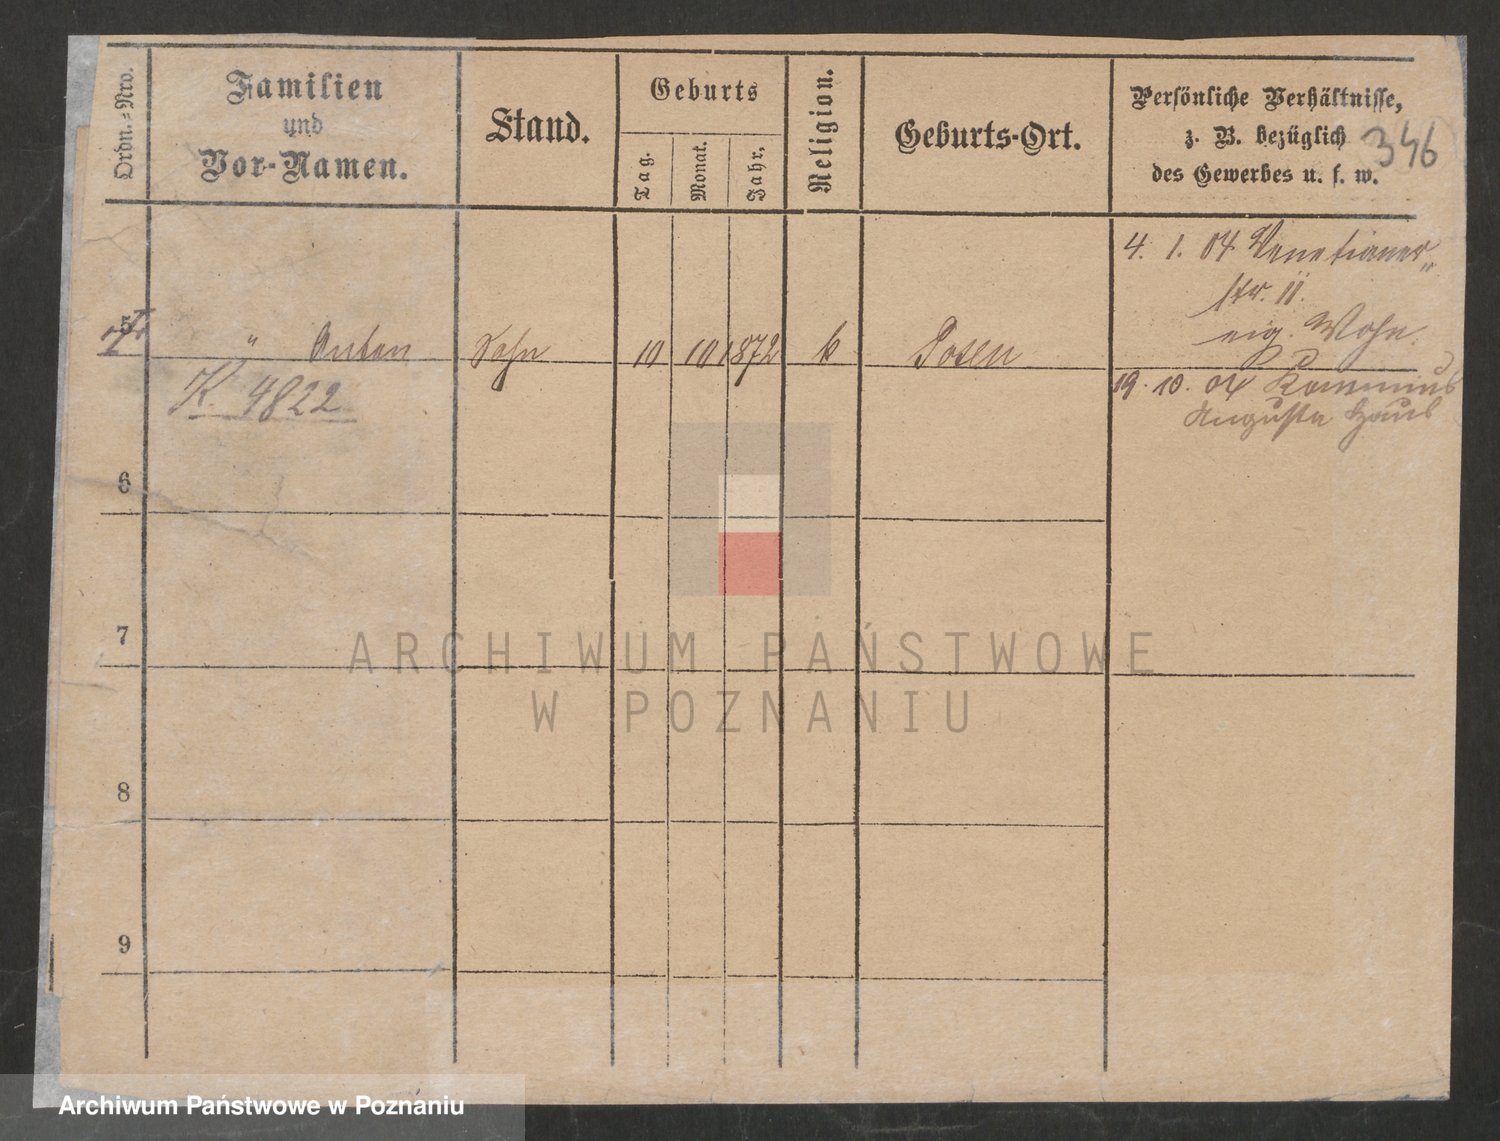 Ordn.-Nro.
Familien
und
Vor-Namen.
Stand.
Geburts
Tag.
Monat.
Jahr.
Religion.
Geburts-Ort.
Persönliche Verhältnisse,
z. B. bezüglich
des Gewerbes u. s. w.
346
4. 1. 04 Venetianer„
str. 11.
eig. Wohn.
5
" Anton
Sohn
10
10
1872
k
Posen
K. 4822
19. 10. 04
Augusta Haus
6
7
8
9
ARCHIWUM PAŃSTWOWE
W POZNANIU
Archiwum Państwowe w Poznaniu